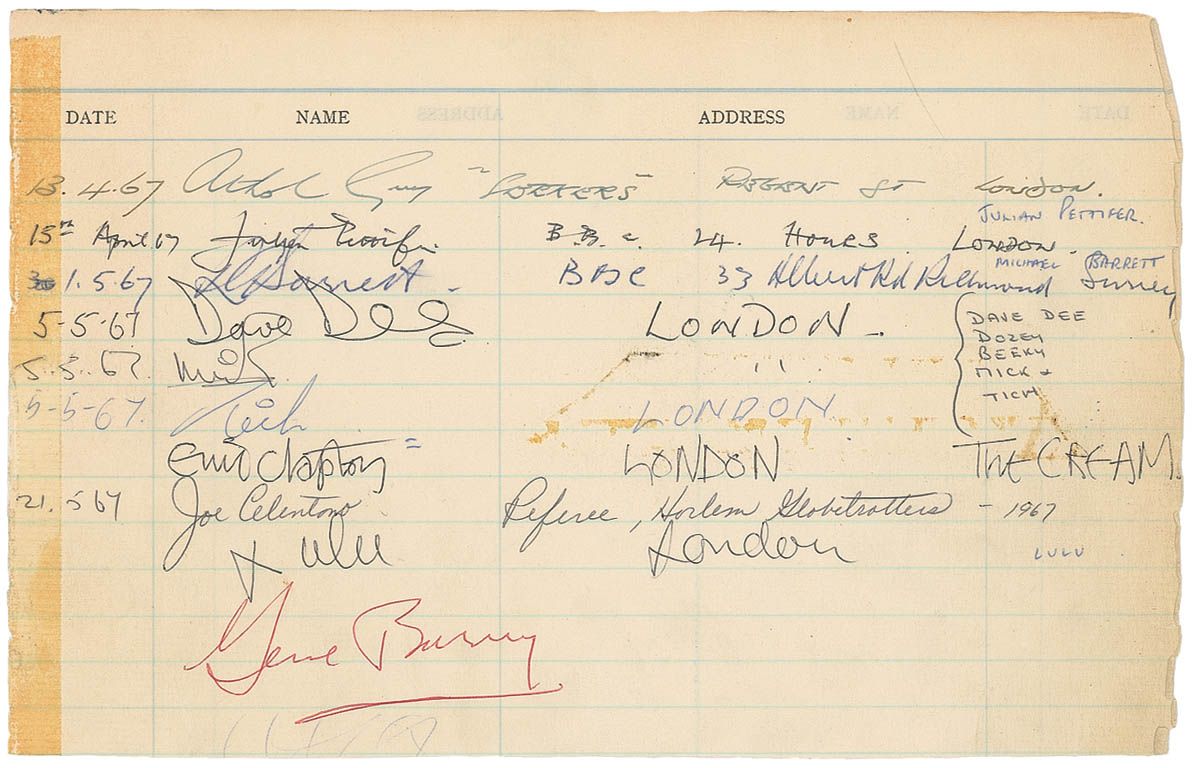 DATE NAME ADDRESS
13.4.67 "LORRERS" REGENT ST LONDON.
JULIAN PETTIFER.
15th April 67 B.B.C. 24. HOURS LONDON.
MICHAEL BARRETT
1.5.67 Barrett BBC 33 Albert Rd Richmond Surrey
5-5-67 Dave Dee LONDON. DAVE DEE
DOZEY
BEEKY
5.5.67. Mick " MICK +
TICH
5-5-67 Tich LONDON
Eric Clapton = LONDON THE CREAM.
21.5 67 Joe Celentano Referee, Harlem Globetrotters - 1967
Lulu London LULU
Gene